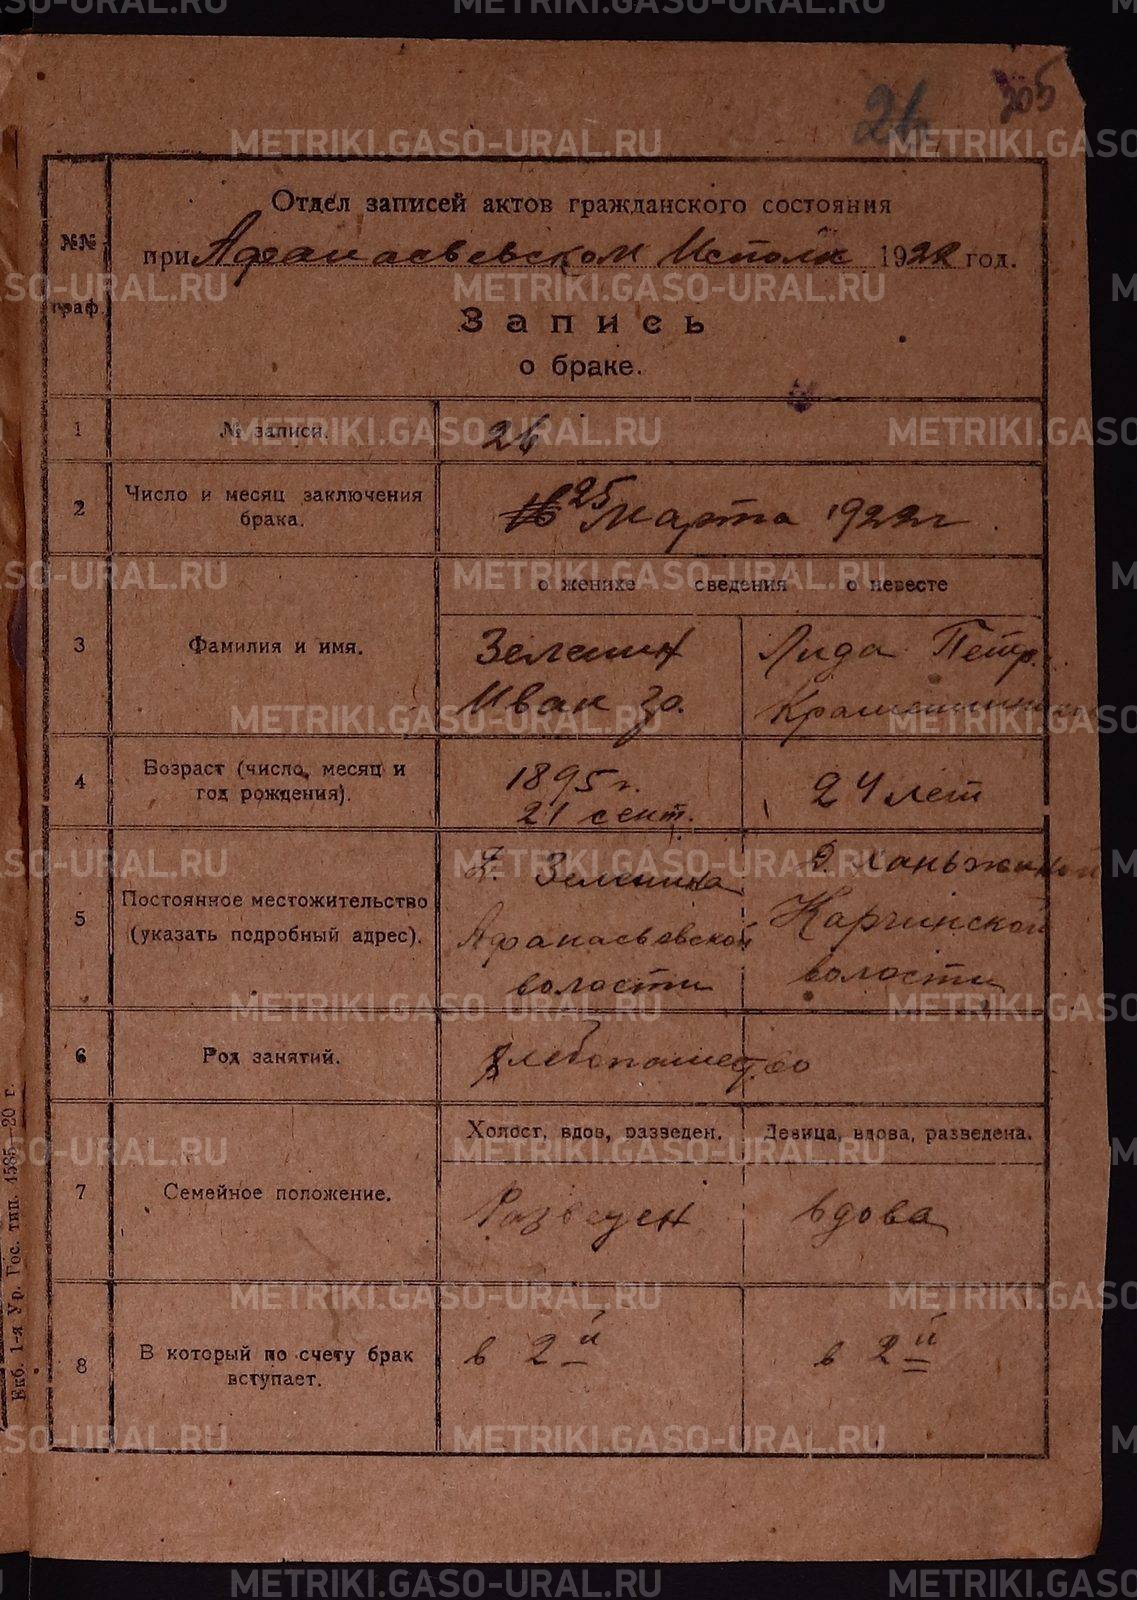 26 305
Отдел записей актов гражданского состояния
при Афанасьевском Исполк. 1922 год.
№№ граф.
Запись
о браке.
1 № записи. 26
2 Число и месяц заключения брака. 25 Марта 1922 г.
о женихе сведения о невесте
3 Фамилия и имя.
Зеленин Лида Петр.
Иван
4 Возраст (число, месяц и год рождения).
1895 г. 24 лет
21 сент.
5 Постоянное местожительство (указать подробный адрес).
Д. Зеленина Д. Ханьжиной
Афанасьевской Карчинской
волости волости
6 Род занятий. Хлебопашество
Холост, вдов, разведен. Девица, вдова, разведена.
7 Семейное положение. Разведен вдова
8 В который по счету брак вступает. в 2й в 2й
Екб. 1-я Ур. Гос. тип. 4585—20 г.
METRIKI.GASO-URAL.RU